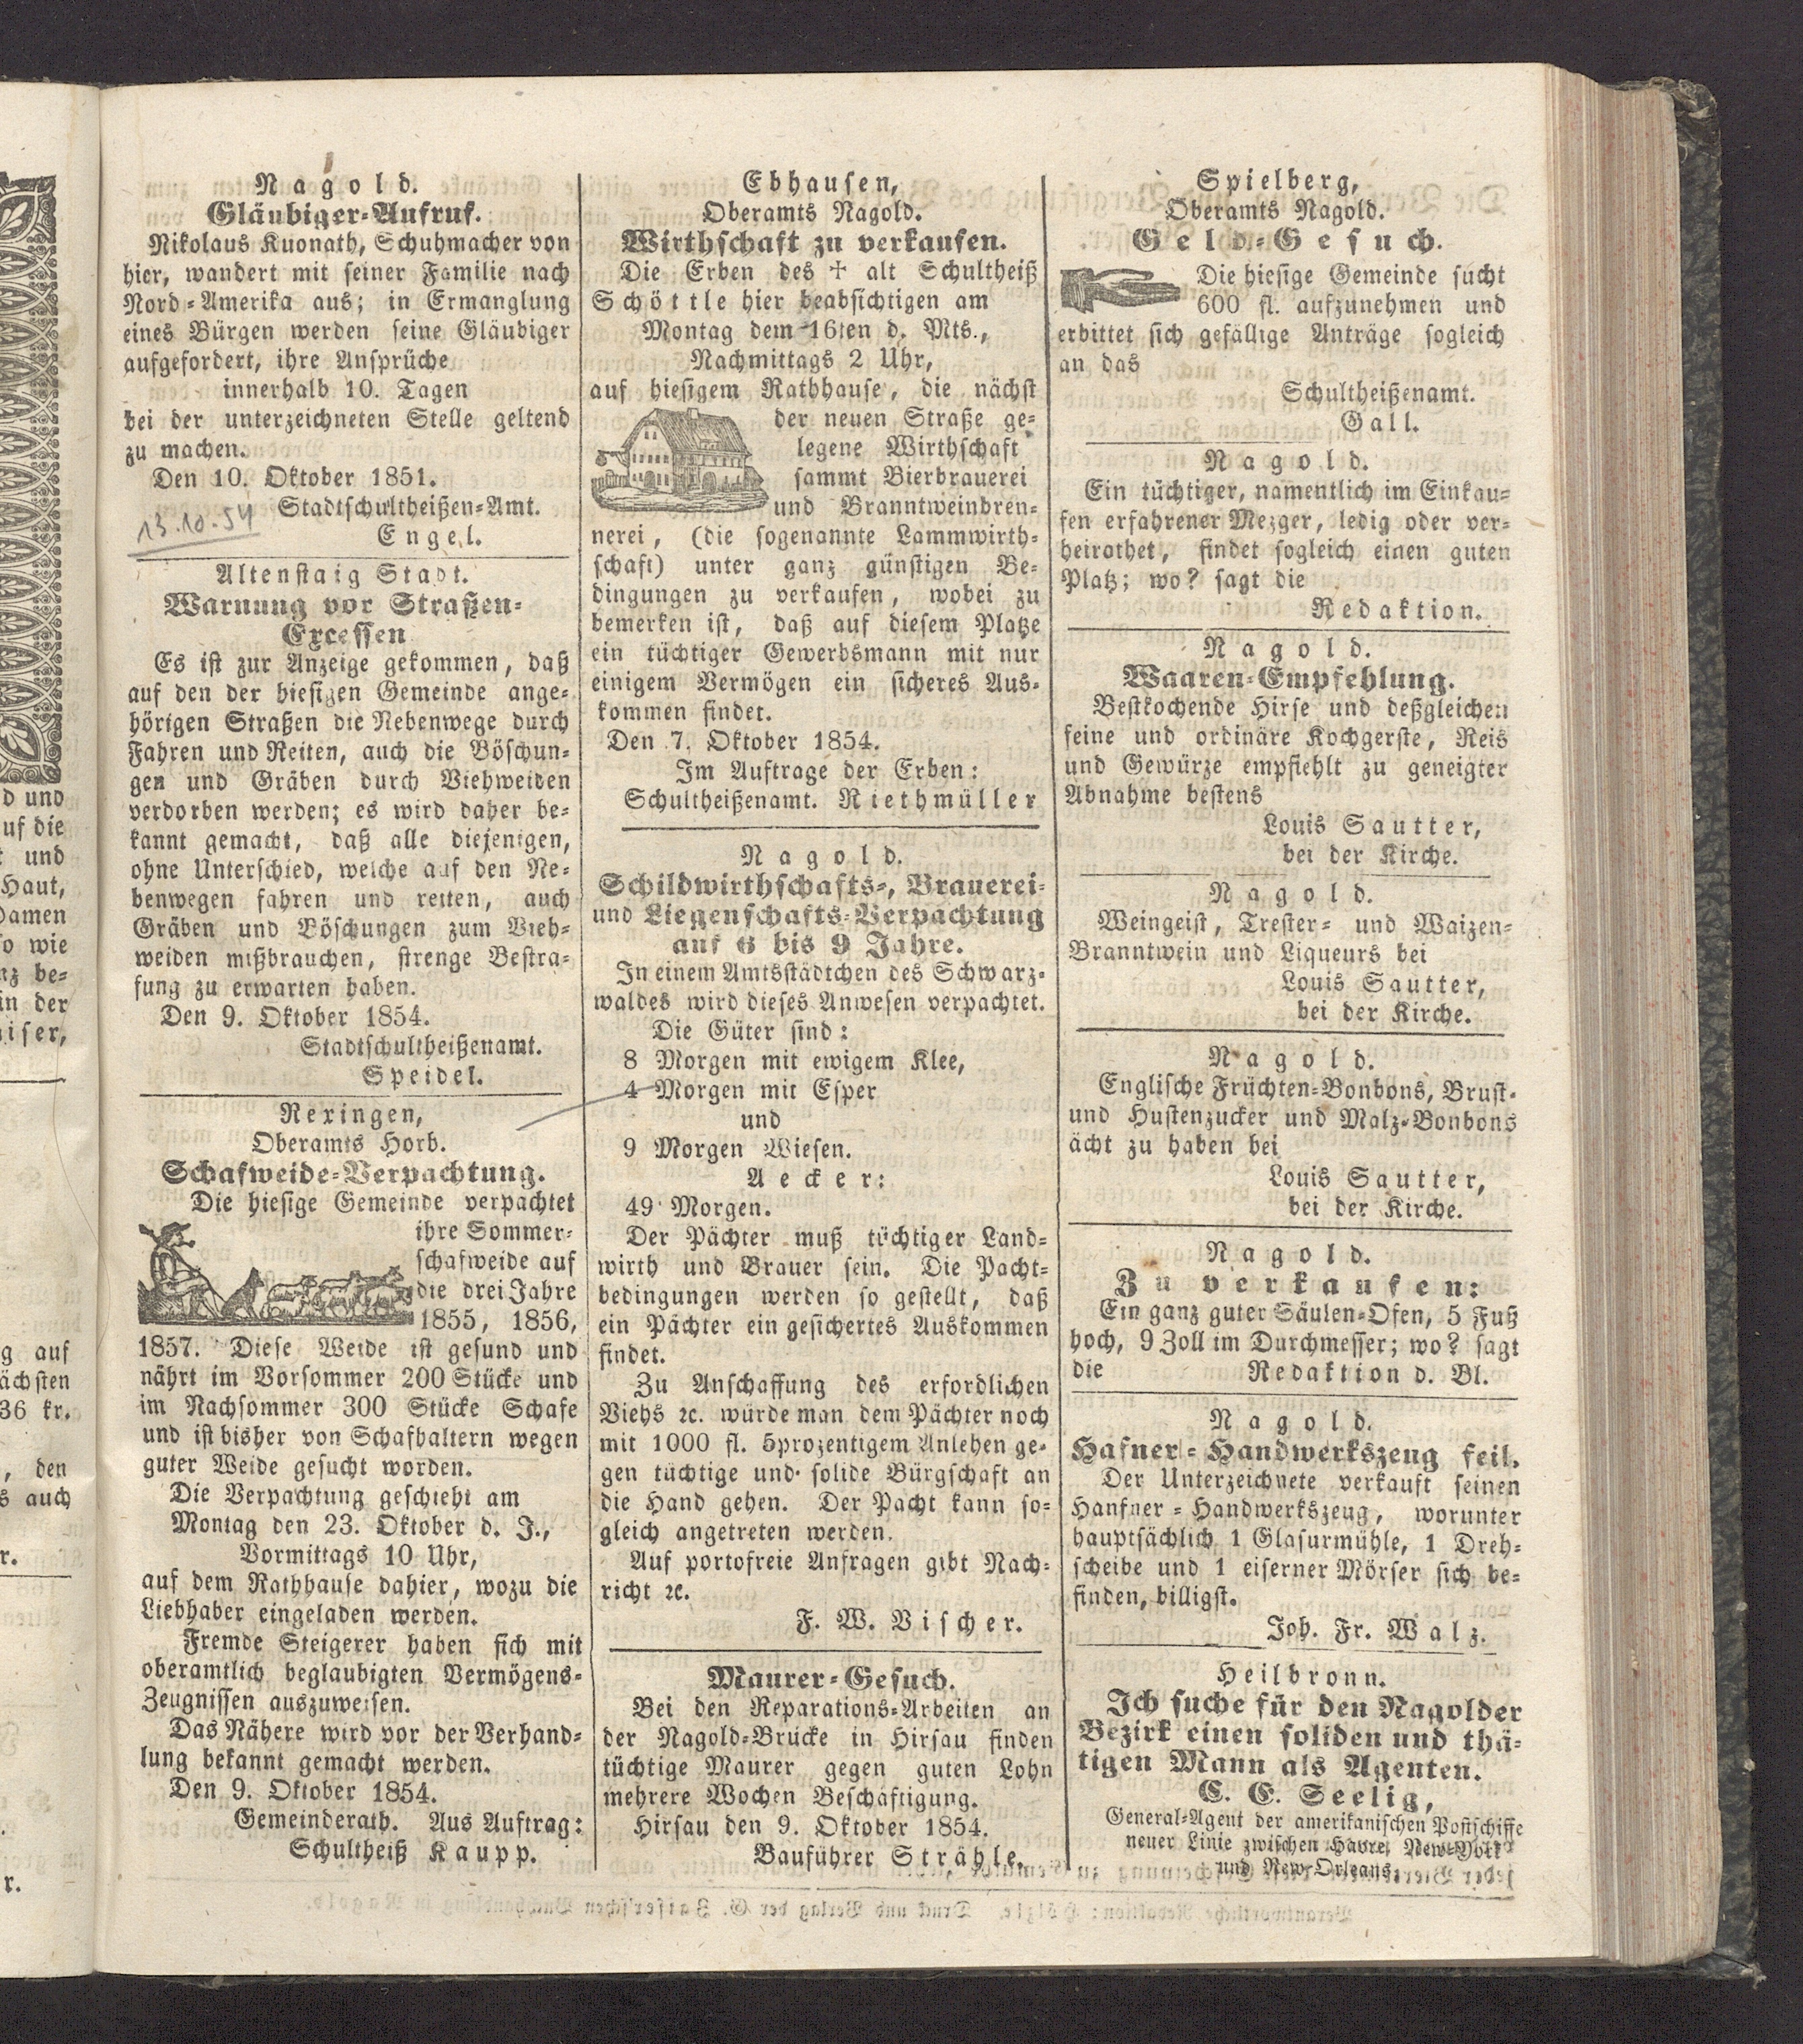 Nagold.
Gläubiger-Aufruf.
Nikolaus Kuonath, Schuhmacher von
hier, wandert mit seiner Familie nach
Nord-Amerika aus; in Ermanglung
eines Bürgen werden seine Gläubiger
aufgefordert, ihre Ansprüche
innerhalb 10. Tagen
bei der unterzeichneten Stelle geltend
zu machen.
Den 10. Oktober 1851.
Stadtschultheißen-Amt.
13.10.54
Engel.
Altenstaig Stadt.
Warnung vor Straßen-
Excessen
Es ist zur Anzeige gekommen, daß
auf den der hiesigen Gemeinde ange-
hörigen Straßen die Nebenwege durch
Fahren und Reiten, auch die Böschun-
gen und Gräben durch Viehweiden
verdorben werden; es wird daher be-
kannt gemacht, daß alle diejenigen,
ohne Unterschied, welche auf den Ne-
benwegen fahren und reiten, auch
Gräben und Böschungen zum Vieh-
weiden mißbrauchen, strenge Bestra-
fung zu erwarten haben.
Den 9. Oktober 1854.
Stadtschultheißenamt.
Speidel.
Rexingen,
Oberamts Horb.
Schafweide-Verpachtung.
Die hiesige Gemeinde verpachtet
ihre Sommer-
schafweide auf
die drei Jahre
1855, 1856,
1857. Diese Weide ist gesund und
nährt im Vorsommer 200 Stücke und
im Nachsommer 300 Stücke Schafe
und ist bisher von Schafhaltern wegen
guter Weide gesucht worden.
Die Verpachtung geschieht am
Montag den 23. Oktober d. J.,
Vormittags 10 Uhr,
auf dem Rathhause dahier, wozu die
Liebhaber eingeladen werden.
Fremde Steigerer haben sich mit
oberamtlich beglaubigten Vermögens-
Zeugnissen auszuweisen.
Das Nähere wird vor der Verhand-
lung bekannt gemacht werden.
Den 9. Oktober 1854.
Gemeinderath. Aus Auftrag:
Schultheiß Kaupp.
Ebhausen,
Oberamts Nagold.
Wirthschaft zu verkaufen.
Die Erben des † alt Schultheiß
Schöttle hier beabsichtigen am
Montag dem 16ten d. Mts.,
Nachmittags 2 Uhr,
auf hiesigem Rathhause, die nächst
der neuen Straße ge-
legene Wirthschaft
sammt Bierbrauerei
und Branntweinbren-
nerei, (die sogenannte Lammwirth-
schaft) unter ganz günstigen Be-
dingungen zu verkaufen, wobei zu
bemerken ist, daß auf diesem Platze
ein tüchtiger Gewerbsmann mit nur
einigem Vermögen ein sicheres Aus-
kommen findet.
Den 7. Oktober 1854.
Im Auftrage der Erben:
Schultheißenamt. Riethmüller
Nagold.
Schildwirthschafts-, Brauerei-
und Liegenschafts-Verpachtung
auf 6 bis 9 Jahre.
In einem Amtsstädtchen des Schwarz-
waldes wird dieses Anwesen verpachtet.
Die Güter sind:
8 Morgen mit ewigem Klee,
4 Morgen mit Esper
und
9 Morgen Wiesen.
Aecker:
49 Morgen.
Der Pächter muß tüchtiger Land-
wirth und Brauer sein. Die Pacht-
bedingungen werden so gestellt, daß
ein Pächter ein gesichertes Auskommen
findet.
Zu Anschaffung des erfordlichen
Viehs ꝛc. würde man dem Pächter noch
mit 1000 fl. 5prozentigem Anlehen ge-
gen tüchtige und solide Bürgschaft an
die Hand gehen. Der Pacht kann so-
gleich angetreten werden.
Auf portofreie Anfragen gibt Nach-
richt ꝛc.
F. W. Vischer.
Maurer-Gesuch.
Bei den Reparations-Arbeiten an
der Nagold-Brücke in Hirsau finden
tüchtige Maurer gegen guten Lohn
mehrere Wochen Beschäftigung.
Hirsau den 9. Oktober 1854.
Bauführer Strähle.
Spielberg,
Oberamts Nagold.
Geld-Gesuch.
Die hiesige Gemeinde sucht
600 fl. aufzunehmen und
erbittet sich gefällige Anträge sogleich
an das
Schultheißenamt.
Gall.
Nagold.
Ein tüchtiger, namentlich im Einkau-
fen erfahrener Mezger, ledig oder ver-
heirathet, findet sogleich einen guten
Platz; wo? sagt die
Redaktion.
Nagold.
Waaren-Empfehlung.
Bestkochende Hirse und deßgleichen
feine und ordinäre Kochgerste, Reis
und Gewürze empfiehlt zu geneigter
Abnahme bestens
Louis Sautter,
bei der Kirche.
Nagold.
Weingeist, Trester- und Waizen-
Branntwein und Liqueurs bei
Louis Sautter,
bei der Kirche.
Nagold.
Englische Früchten-Bonbons, Brust-
und Hustenzucker und Malz-Bonbons
ächt zu haben bei
Louis Sautter,
bei der Kirche.
Nagold.
Zu verkaufen:
Ein ganz guter Säulen-Ofen, 5 Fuß
hoch, 9 Zoll im Durchmesser; wo? sagt
die Redaktion d. Bl.
Nagold.
Hafner-Handwerkszeug feil.
Der Unterzeichnete verkauft seinen
Hanfner-Handwerkszeug, worunter
hauptsächlich 1 Glasurmühle, 1 Dreh-
scheibe und 1 eiserner Mörser sich be-
finden, billigst.
Joh. Fr. Walz.
Heilbronn.
Ich suche für den Nagolder
Bezirk einen soliden und thä-
tigen Mann als Agenten.
C. E. Seelig,
General-Agent der amerikanischen Postschiffe
neuer Linie zwischen Havre, New-York
und New-Orleans.